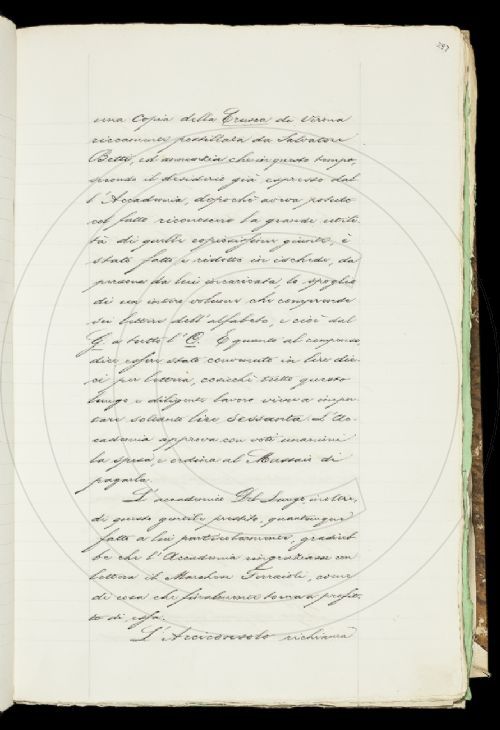 297
una Copia della Crusca di Verona
riccamente postillata da Salvatore
Betti, ed annunzia che in questo tempo,
secondo il desiderio già espresso dal
l'Accademia, dopochè aveva potuto
col fatto riconoscere la grande utili
tà di quelle copiosissime giunte, è
stato fatto e ridotto in ischede, da
persona da lui incaricata, lo spoglio
di un intero volume che comprende
sei lettere dell'alfabeto, e cioè dal
G. a tutto l'O. E quanto al compenso,
dice essere stato convenuto in lire die-
ci per lettera, cosicchè tutto questo
lungo e diligente lavoro viene a impor
tare soltanto lire sessanta. L'Ac-
cademia approva con voti unanimi
la spesa, e ordina al Massaio di
pagarla.
L'accademico Del Lungo, inoltre,
di questo gentile prestito, quantunque
fatto a lui particolarmente, gradireb
be che l'Accademia ringraziasse con
lettera il Marchese Ferraioli, come
di cosa che finalmente torna a profit-
to di essa.
L'Arciconsolo richiama